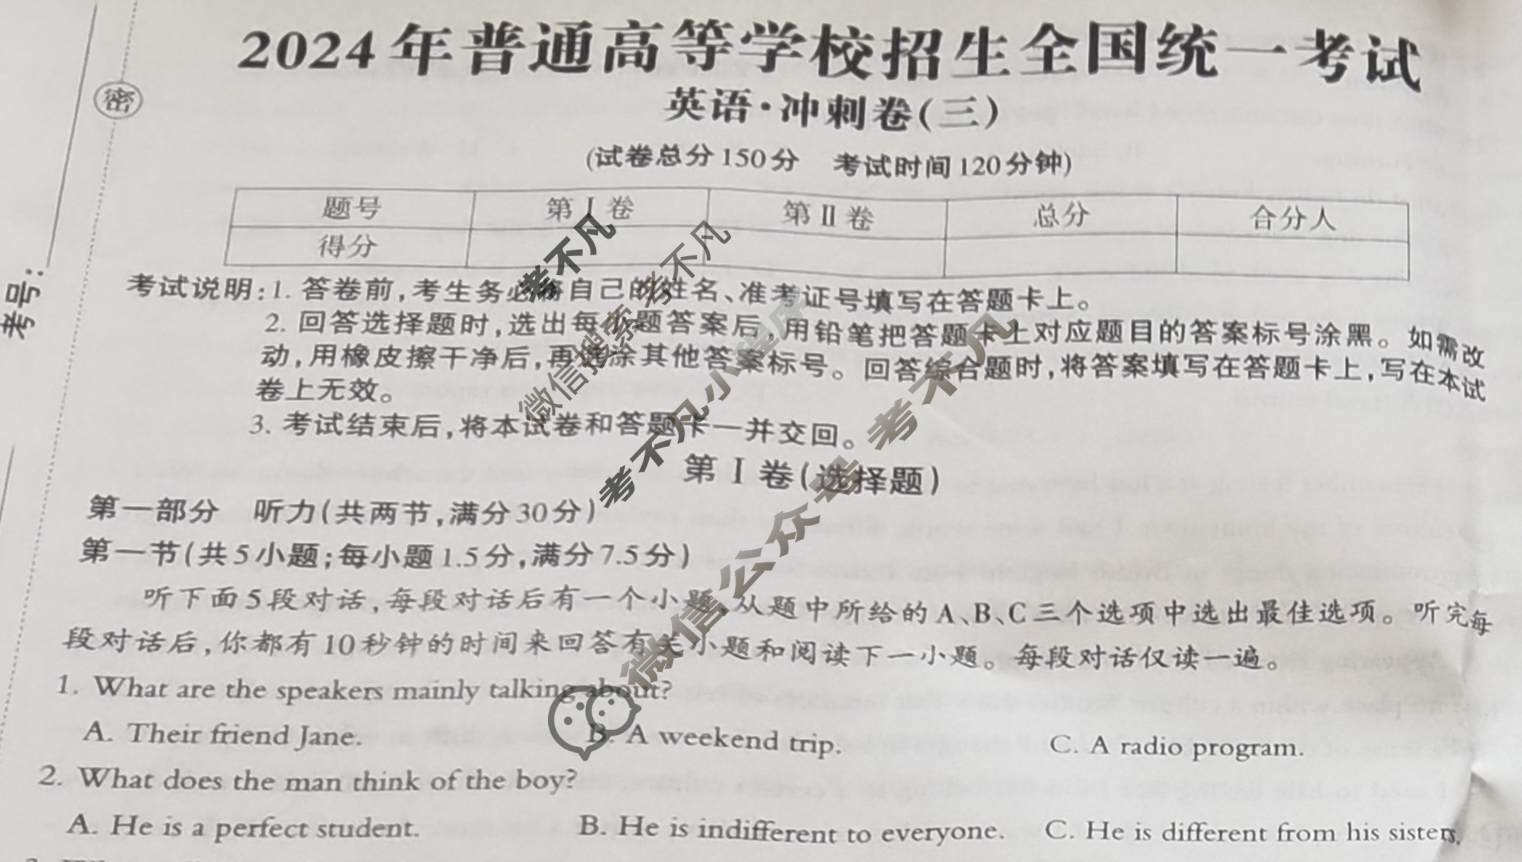 2024年普通高等学校招生全国统一考试
密
英语·冲刺卷(三)
(试卷总分150分 考试时间120分钟)
题号 第Ⅰ卷 第Ⅱ卷 总分 合分人
得分
考号:
考试说明:1. 答卷前,考生务必将自己的姓名、准考证号填写在答题卡上。
2. 回答选择题时,选出每小题答案后,用铅笔把答题卡上对应题目的答案标号涂黑。如需改
动,用橡皮擦干净后,再选涂其他答案标号。回答综合题时,将答案填写在答题卡上,写在本试
卷上无效。
3. 考试结束后,将本试卷和答题卡一并交回。
第Ⅰ卷(选择题)
第一部分 听力(共两节,满分30分)
第一节(共5小题;每小题1.5分,满分7.5分)
听下面5段对话,每段对话后有一个小题,从题中所给的A、B、C三个选项中选出最佳选项。听完每
段对话后,你都有10秒钟的时间来回答有关小题和阅读下一小题。每段对话仅读一遍。
1. What are the speakers mainly talking about?
A. Their friend Jane. B. A weekend trip. C. A radio program.
2. What does the man think of the boy?
A. He is a perfect student. B. He is indifferent to everyone. C. He is different from his sisters.
考不凡
微信搜索 考不凡
考不凡小程序
微信公众号 考不凡